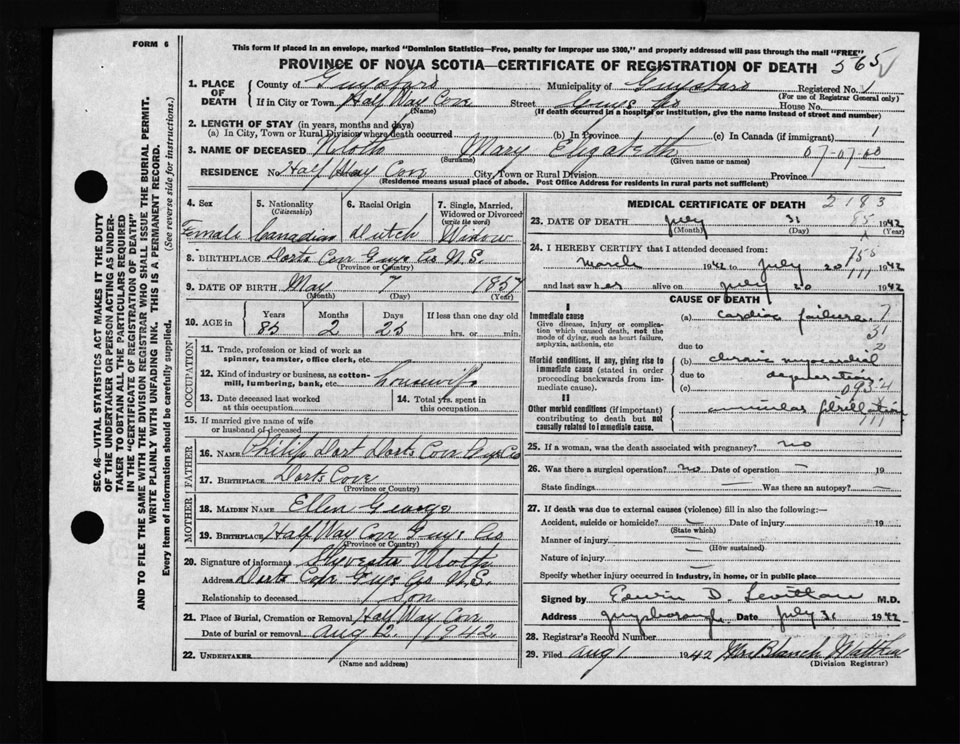 FORM 6
This form if placed in an envelope, marked "Dominion Statistics—Free, penalty for improper use $300," and properly addressed will pass through the mail "FREE"
PROVINCE OF NOVA SCOTIA—CERTIFICATE OF REGISTRATION OF DEATH 565
SEC. 46—VITAL STATISTICS ACT MAKES IT THE DUTY
OF THE UNDERTAKER OR PERSON ACTING AS UNDER-
TAKER TO OBTAIN ALL THE PARTICULARS REQUIRED
IN THE "CERTIFICATE OF REGISTRATION OF DEATH"
AND TO FILE THE SAME WITH THE DIVISION REGISTRAR WHO SHALL ISSUE THE BURIAL PERMIT.
WRITE PLAINLY WITH UNFADING INK. THIS IS A PERMANENT RECORD.
Every item of information should be carefully supplied. (See reverse side for instructions.)
1. PLACE OF DEATH
County of Municipality of Registered No. 1
(For use of Registrar General only)
If in City or Town Half Way Cove Street House No.
(Name) (If death occurred in a hospital or institution, give the name instead of street and number)
2. LENGTH OF STAY (in years, months and days)
(a) In City, Town or Rural Division where death occurred (b) In Province (c) In Canada (if immigrant) 1
3. NAME OF DECEASED Mary Elizabeth 07-07-60
(Surname) (Given name or names)
RESIDENCE No. Half Way Cove City, Town or Rural Division Province 7
(Residence means usual place of abode. Post Office Address for residents in rural parts not sufficient)
4. Sex 5. Nationality (Citizenship) 6. Racial Origin 7. Single, Married, Widowed or Divorced (write the word)
Female Canadian Dutch Widow
8. BIRTHPLACE Dorts Cove Guys Co N.S.
(Province or Country)
9. DATE OF BIRTH May 7 1857
(Month) (Day) (Year)
10. AGE IN Years Months Days If less than one day old
85 2 25 hrs. or min.
OCCUPATION
11. Trade, profession or kind of work as
spinner, teamster, office clerk, etc.
12. Kind of industry or business, as cotton-
mill, lumbering, bank, etc. housewife
13. Date deceased last worked at this occupation 14. Total yrs. spent in this occupation
15. If married give name of wife
or husband of deceased
FATHER
16. NAME Philip Dort Dorts Cove Guys Co
17. BIRTHPLACE Dorts Cove
(Province or Country)
MOTHER
18. MAIDEN NAME Ellen George
19. BIRTHPLACE Half Way Cove Guys Co
(Province or Country)
20. Signature of informant Sylvester
Address Dorts Cove Guys Co N.S.
Relationship to deceased Son
21. Place of Burial, Cremation or Removal Half Way Cove
Date of burial or removal Aug 2 1942
22. UNDERTAKER
(Name and address)
MEDICAL CERTIFICATE OF DEATH 2183
23. DATE OF DEATH July 31 1942
(Month) (Day) (Year)
24. I HEREBY CERTIFY that I attended deceased from:
March 1942 to July 20 1942
and last saw her alive on July 20 1942
CAUSE OF DEATH
I
Immediate cause (a) cardiac failure
Give disease, injury or complica-
tion which caused death, not the
mode of dying, such as heart failure,
asphyxia, asthenia, etc
due to
Morbid conditions, if any, giving rise to (b) chronic myocardial
immediate cause (stated in order due to degeneration
proceeding backwards from im- (c)
mediate cause).
II
Other morbid conditions (if important) auricular fibrillation
contributing to death but not
causally related to immediate cause.
25. If a woman, was the death associated with pregnancy? no
26. Was there a surgical operation? no Date of operation — 19
State findings — Was there an autopsy? —
27. If death was due to external causes (violence) fill in also the following:—
Accident, suicide or homicide? — Date of injury 19
(State which)
Manner of injury —
(How sustained)
Nature of injury —
Specify whether injury occurred in industry, in home, or in public place
Signed by Edwin D. M.D.
Address Guysborough Date July 31 1942
28. Registrar's Record Number
29. Filed Aug 1 1942 Mrs Blanch
(Division Registrar)